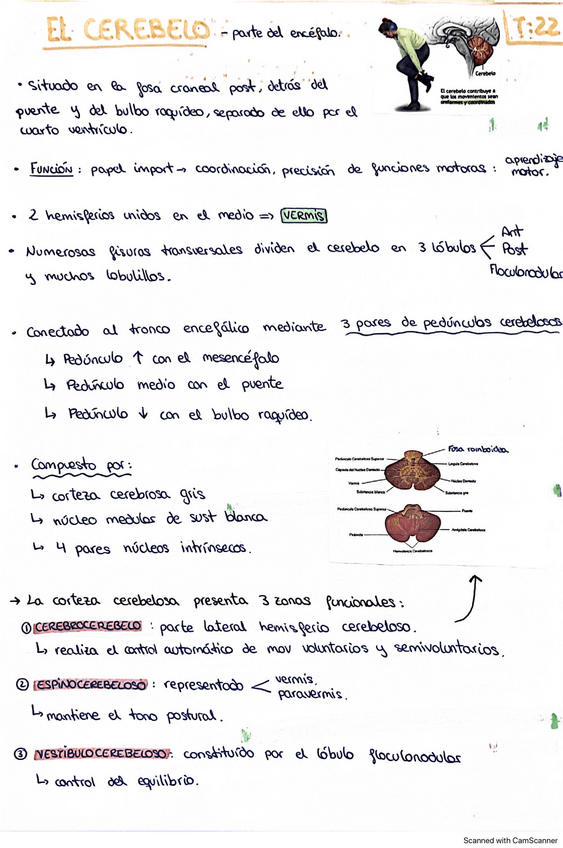 EL CEREBELO - parte del encéfalo.
T:22
Cerebelo
El cerebelo contribuye a
que los movimientos sean
uniformes y coordinados
• Situado en la fosa craneal post, detrás del
puente y del bulbo raquídeo, separado de ello por el
cuarto ventrículo.
• FUNCIÓN: papel import → coordinación, precisión de funciones motoras: aprendizaje
motor.
• 2 hemisferios unidos en el medio => VERMIS
• Numerosas fisuras transversales dividen el cerebelo en 3 lóbulos < Ant
Post
Floculonodular
y muchos lobulillos.
• Conectado al tronco encefálico mediante 3 pares de pedúnculos cerebelosos
↳ Pedúnculo ↑ con el mesencéfalo
↳ Pedúnculo medio con el puente
↳ Pedúnculo ↓ con el bulbo raquídeo.
• Compuesto por:
↳ corteza cerebrosa gris
↳ núcleo medular de sust blanca
↳ 4 pares núcleos intrínsecos.
Fosa romboidea
Pedúnculo Cerebeloso Superior
Língula Cerebelosa
Cápsula del Núcleo Dentado
Vermis
Núcleo Dentado
Sustancia blanca
Sustancia gris
Pedúnculo Cerebeloso Superior
Puente
Amígdala Cerebelosa
Hemisferios Cerebelosos
→ La corteza cerebelosa presenta 3 zonas funcionales:
① CEREBROCEREBELO: parte lateral hemisferio cerebeloso.
↳ realiza el control automático de mov voluntarios y semivoluntarios.
② ESPINOCEREBELOSO: representado < vermis.
paravermis.
↳ mantiene el tono postural.
③ VESTIBULOCEREBELOSO: constituído por el lóbulo floculonodular
↳ control del equilibrio.
Scanned with CamScanner